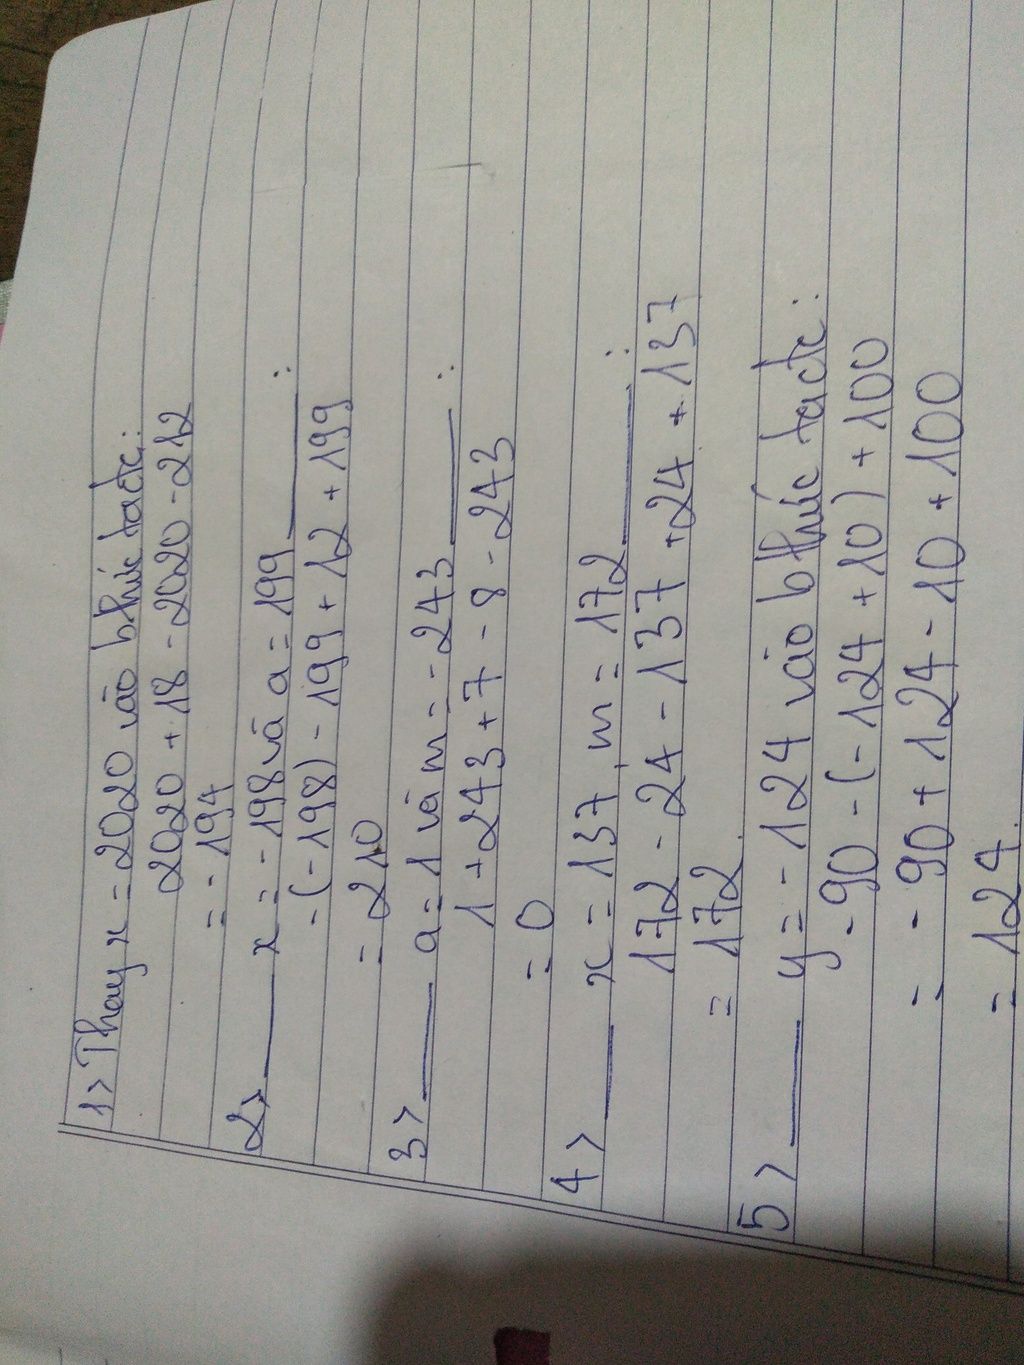 1> Thay x = 2020 vào bthức tađc:
2020 + 18 - 2020 - 212
= - 194
2> ——— x = - 198 và a = 199 ——— :
- (- 198) - 199 + 12 + 199
= 210
3> ——— a = 1 và m = - 243 ——— :
1 + 243 + 7 - 8 - 243
= 0
4> ——— x = 137, m = 172 ——— :
172 - 24 - 137 + 24 + 137
= 172.
5> ——— y = - 124 vào bthức tađc:
- 90 - (- 124 + 10) + 100
= - 90 + 124 - 10 + 100
= 124.